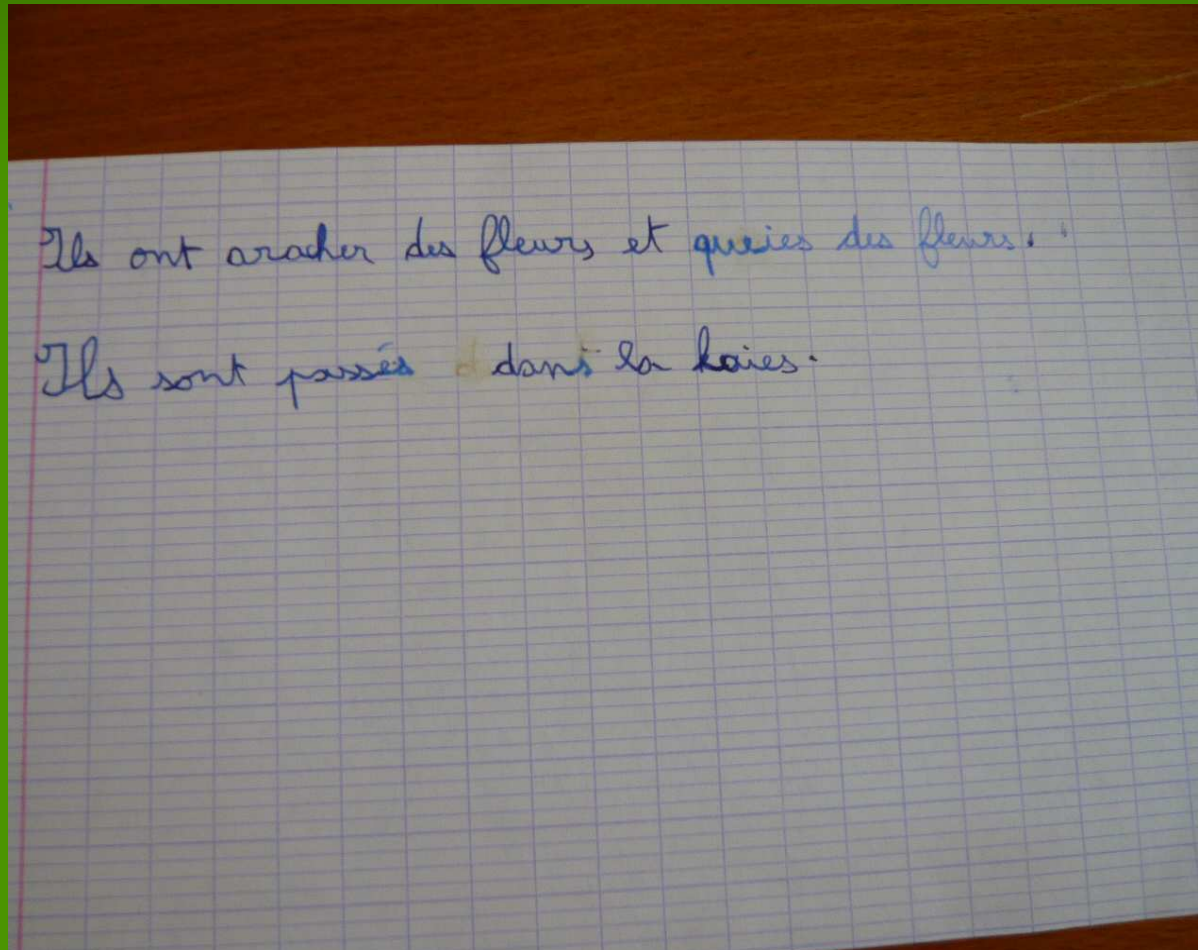 Ils ont aracher des fleurs et queies des fleurs.
Ils sont passés dans la haies.